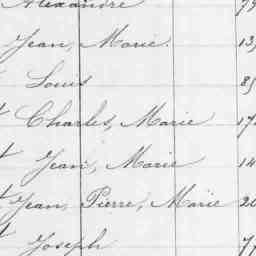 Alexandre 79
Jean, Marie. 13,
Louis 85
t Charles, Marie 17
t Jean, Marie 14
t Jean, Pierre, Marie 20
t Joseph 77